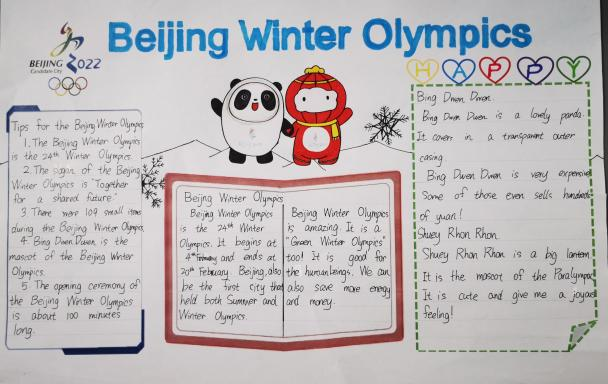 Beijing Winter Olympics
BEIJING 2022
Candidate City
HAPPY
Tips for the Beijing Winter Olympics
1. The Beijing Winter Olympics
is the 24th Winter Olympics.
2. The slogan of the Beijing
Winter Olympics is "Together
for a shared future".
3. There were 109 small items
during the Beijing Winter Olympics.
4. Bing Dwen Dwen is the
mascot of the Beijing Winter
Olympics.
5. The opening ceremony of
the Beijing Winter Olympics
is about 100 minutes
long.
Beijing Winter Olympics
Beijing Winter Olympics
is the 24th Winter
Olympics. It begins at
4th February and ends at
20th February. Beijing also
be the first city that
held both Summer and
Winter Olympics.
Beijing Winter Olympics
is amazing. It is a
"Green Winter Olympics"
too! It is good for
the human beings. We can
also save more energy
and money.
Bing Dwen Dwen.
Bing Dwen Dwen is a lovely panda.
It covers in a transparent outer
casing.
Bing Dwen Dwen is very expensive
Some of those even sells hundreds
of yuan!
Shuey Rhon Rhon.
Shuey Rhon Rhon is a big lantern.
It is the mascot of the Paralympic
It is cute and give me a joyous
feeling!